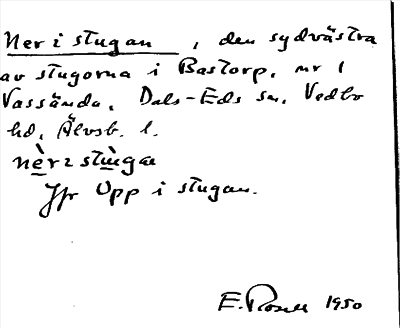 Ner i stugan, den sydvästra
av stugorna i Bastorp, nr 1
Vassända, Dals-Eds sn, Vedbo
hd, Älvsb. l.
nèr i stùgan
Jfr Opp i stugan.
E. Rosell 1950